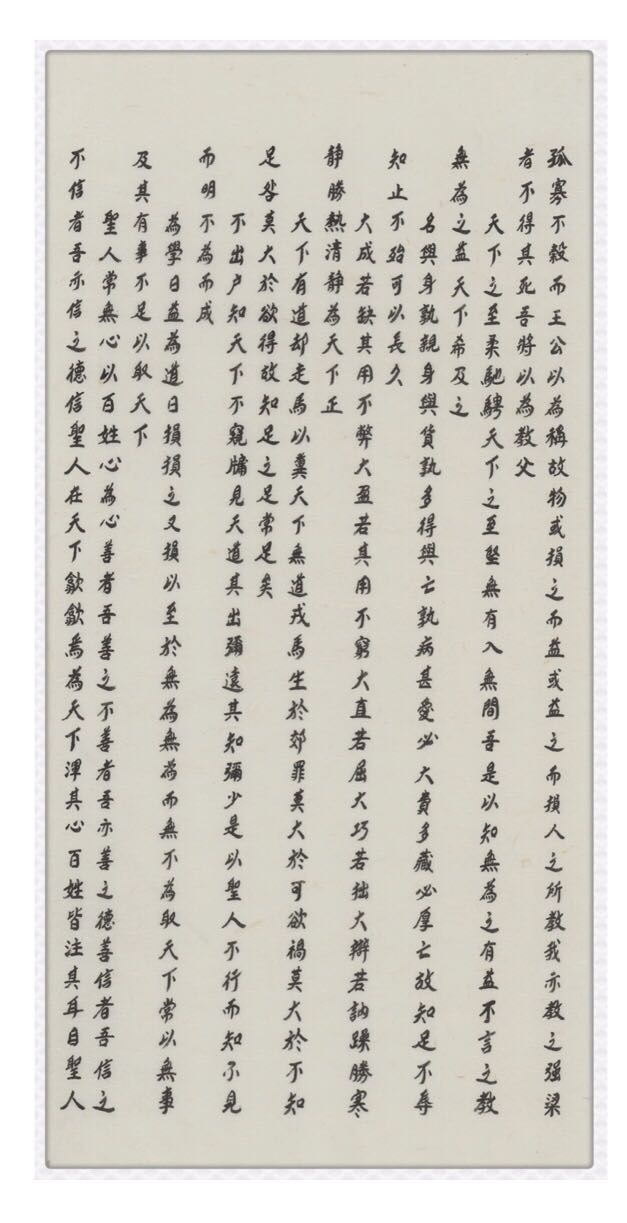 孤寡不穀而王公以為稱故物或損之而益或益之而損人之所教我亦教之强梁
者不得其死吾將以為教父
天下之至柔馳騁天下之至堅無有入無間吾是以知無為之有益不言之教
無為之益天下希及之
名與身孰親身與貨孰多得與亡孰病甚愛必大費多藏必厚亡故知足不辱
知止不殆可以長久
大成若缺其用不弊大盈若其用不窮大直若屈大巧若拙大辯若訥躁勝寒
静勝熱清静為天下正
天下有道却走馬以糞天下無道戎馬生於郊罪莫大於可欲禍莫大於不知
足咎莫大於欲得故知足之足常足矣
不出户知天下不窺牖見天道其出彌遠其知彌少是以聖人不行而知不見
而明不為而成
為學日益為道日損損之又損以至於無為無為而無不為取天下常以無事
及其有事不足以取天下
聖人常無心以百姓心為心善者吾善之不善者吾亦善之德善信者吾信之
不信者吾亦信之德信聖人在天下歙歙焉為天下渾其心百姓皆注其耳目聖人